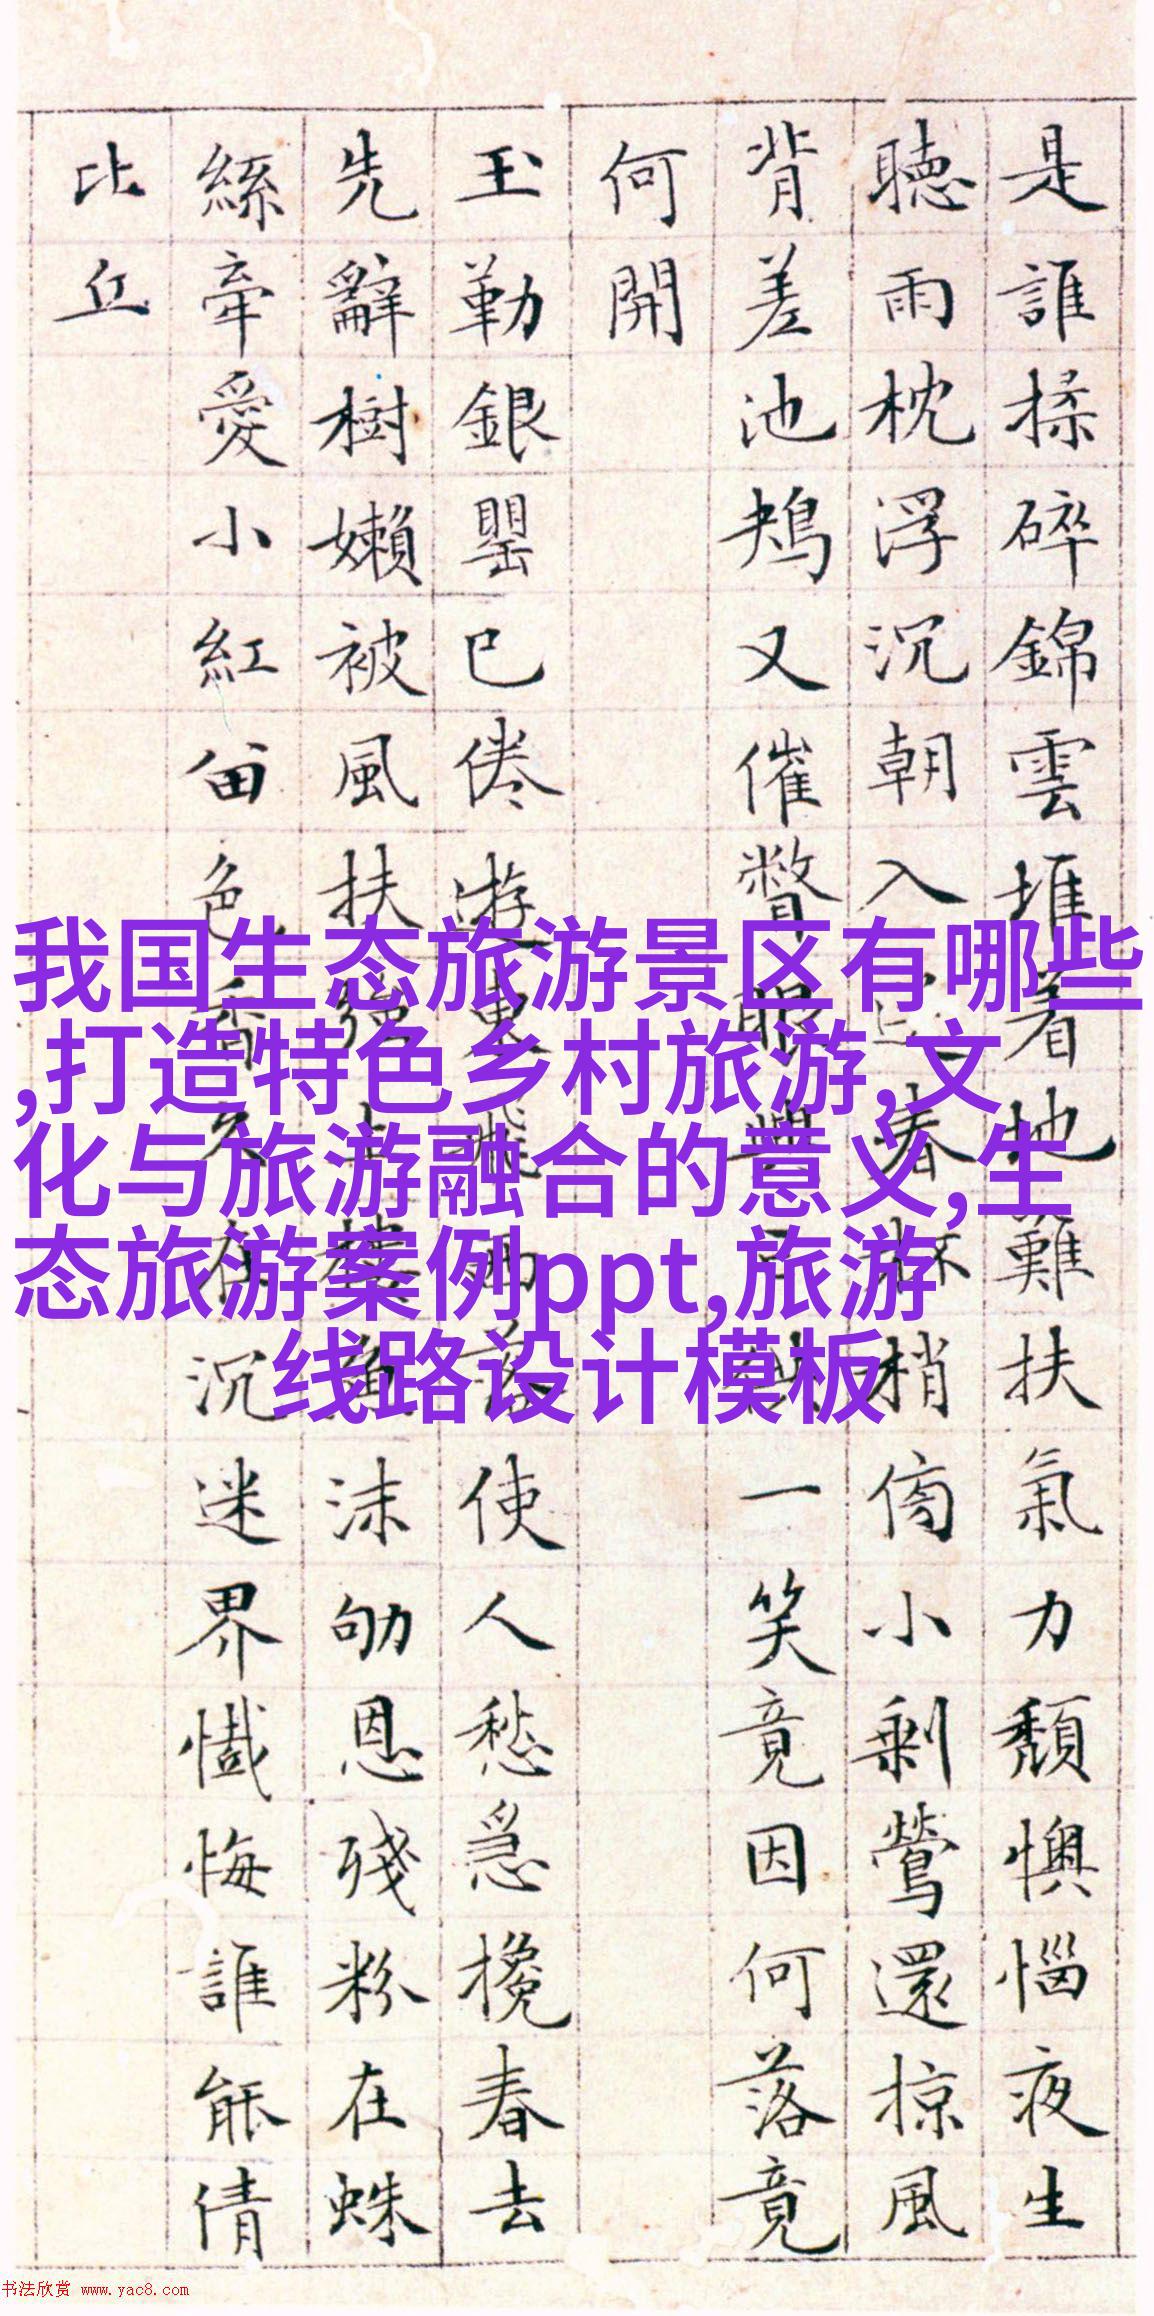 是誰揉碎錦雲堆着地難扶氣力頹懊惱夜生
聽雨枕浮沉朝入春杯梢傍小剩鶯還掠風
背差池鴂又催瞥眼興一笑竟因何落竟
何開
玉勒銀罌已倦遊東飛西落使人愁急攙春去
先辭樹嬾被風扶強上樓魚沫劬恩殘粉在蛛
絲牽愛小紅留色香久在沉迷界懺悔誰能倩
比丘
我国生态旅游景区有哪些
,打造特色乡村旅游,文
化与旅游融合的意义,生
态旅游案例ppt,旅游
线路设计模板
书法欣赏 www.yac8.com